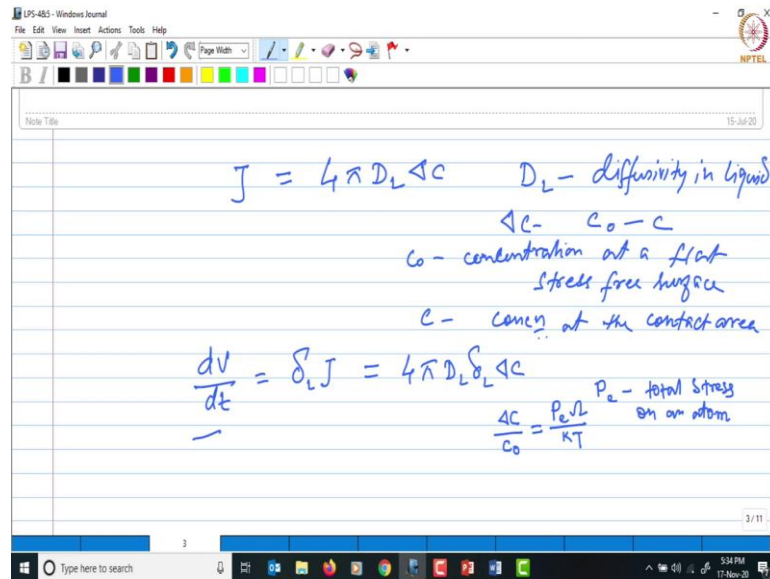 LPS-4&5 - Windows Journal
File Edit View Insert Actions Tools Help
Page Width
NPTEL
B I
Note Title
15-Jul-20
J = 4πD_L ΔC D_L - diffusivity in liquid
ΔC - C₀ - C
C₀ - concentration at a flat
stress free surface
C - concn at the contact area
dV/dt = δ_L J = 4πD_L δ_L ΔC
Pe - total stress
on an atom
ΔC/C₀ = PeΩ/KT
3/11
3
Type here to search
5:34 PM
17-Nov-20